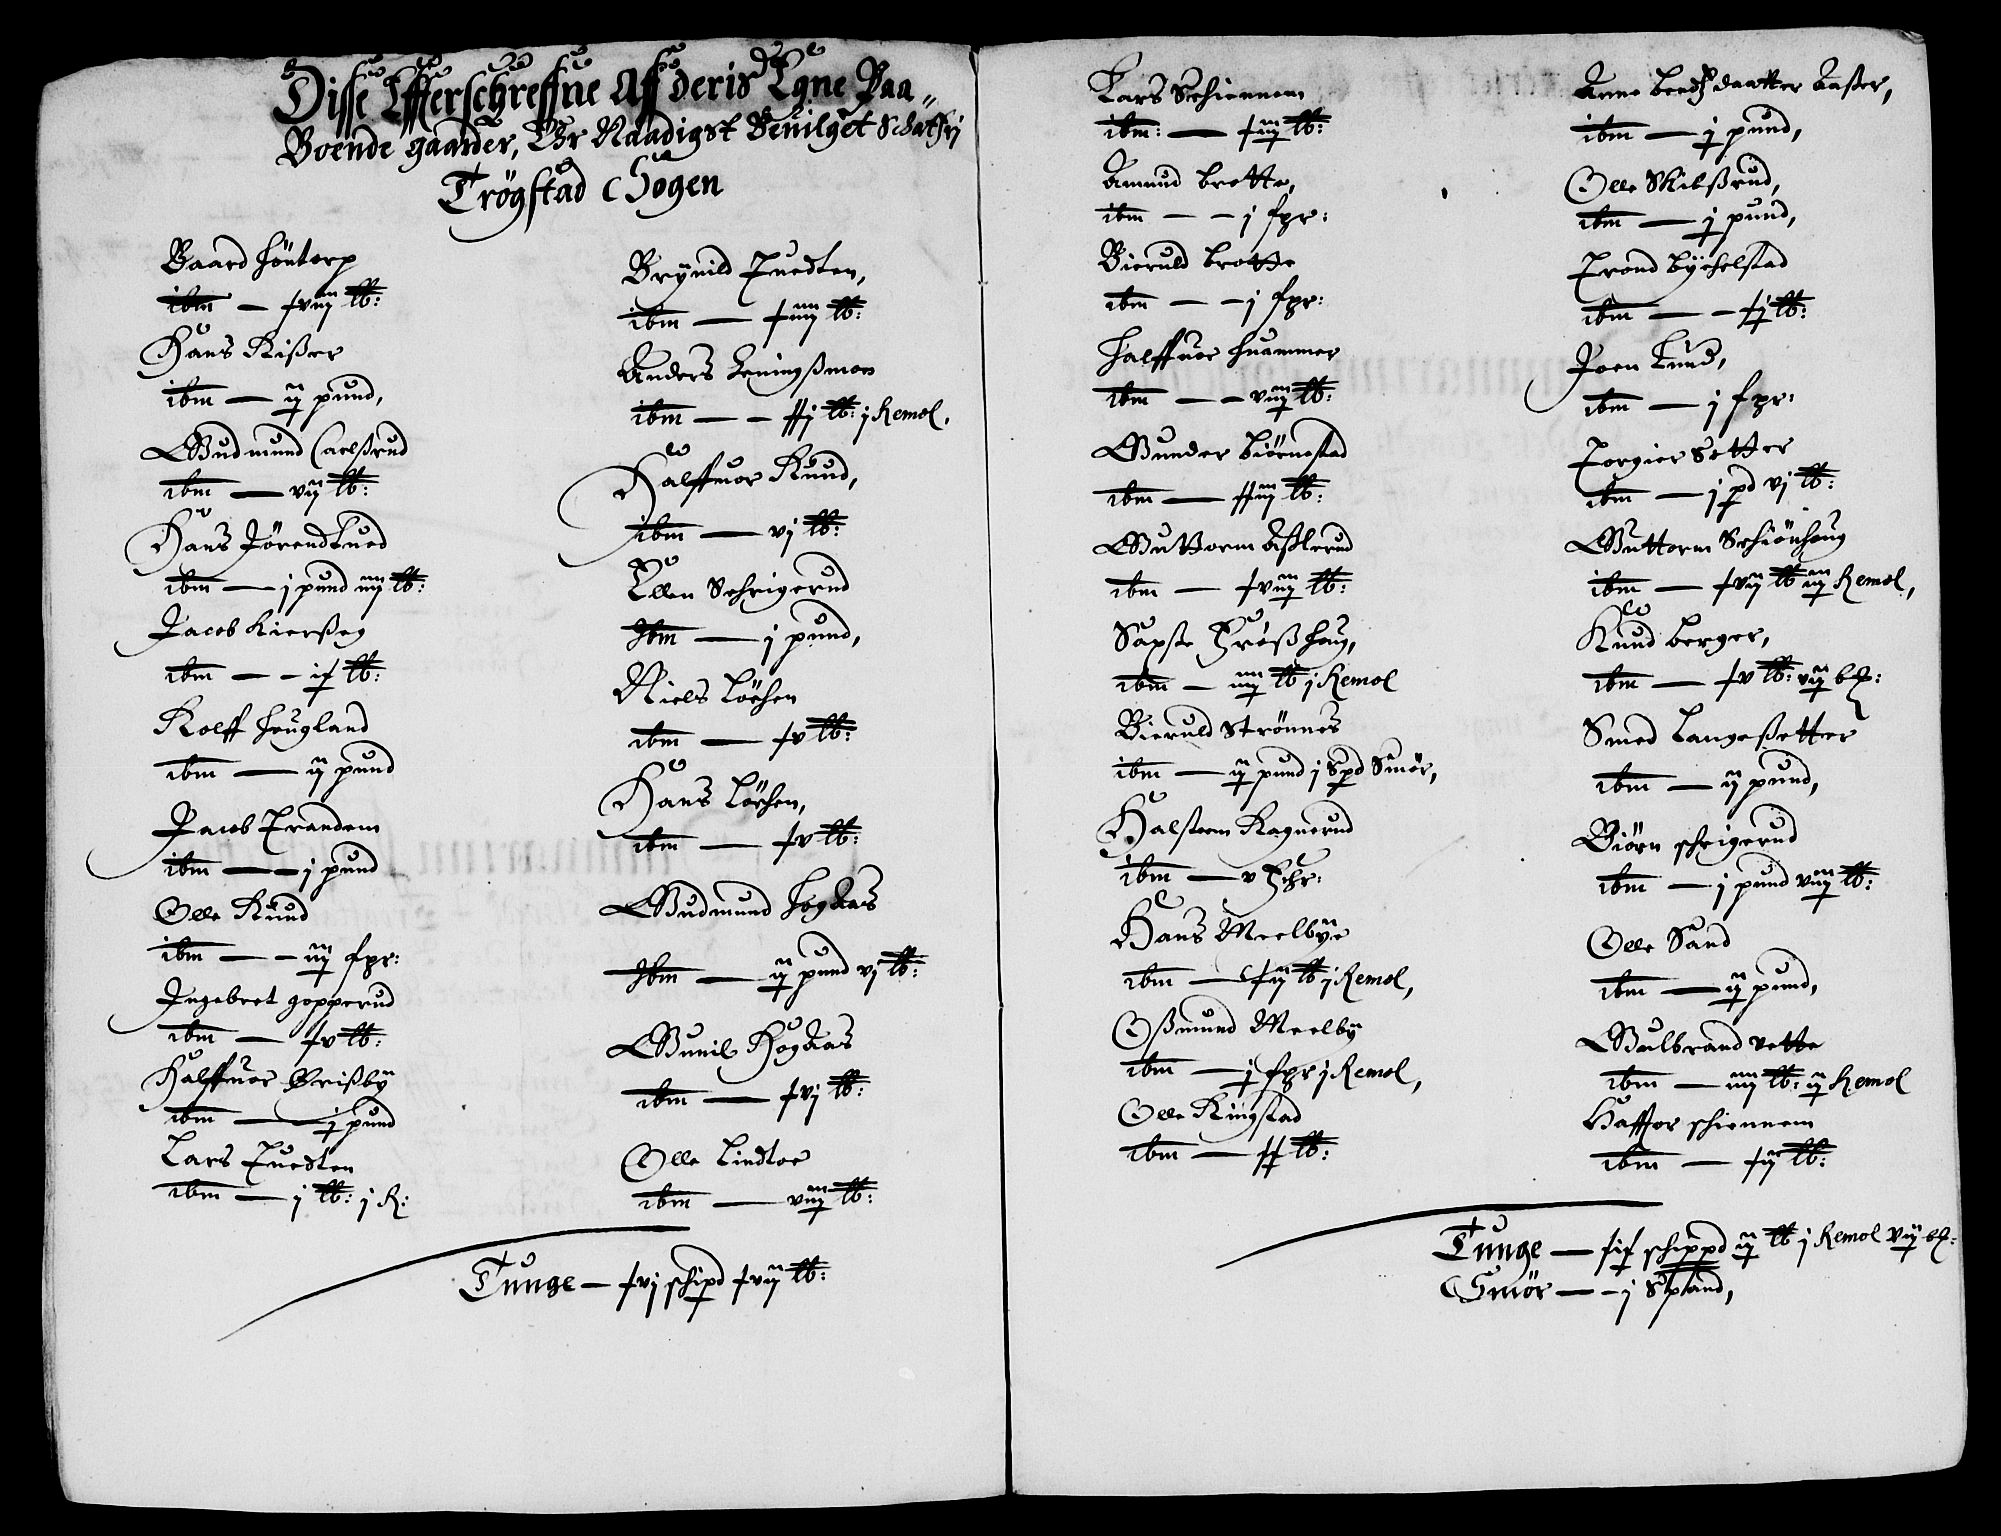 Disse Effterschreffne Aff deris Egne Paa„
Boende gaarder, Er Naadigst Beuilget Schatfrj
Trögstad Sogen
Baard Höntorp
ibm — xviij lb:
Hans Rißer
ibm — ij pund,
Gudmund Carlßrud
ibm — vij lb:
Hans Jörendtued
ibm — j pund iiij lb:
Jacob Kierßeg
ibm — — ix lb:
Rolff Haugland
ibm — ij pund
Jacob Trandem
ibm — — j pund
Olle Ruud
ibm — — iij fpr:
Ingebret gopperud
ibm — xv lb:
Halffuor Grißby
ibm — j pund
Lars Tuedten
ibm — j lb: j R:
Brynild Tuedten,
ibm — xiiij lb:
Anders Leningßmon
ibm — — xxj lb: j Remol.
Halffuor Ruud,
ibm — vj lb:
Ellen Schrigerud
Ibm — j pund,
Niels Löchen
ibm — xv lb:
Hans Löchen,
ibm — xv lb:
Gudmund Hogaas
Ibm — ij pund vj lb:
Gunil Hogaas
ibm — xvj lb:
Olle Lindtoe
ibm — viij lb:
Tunge — xvj schipd xvij lb:
Lars Schiennem
ibm: — xiij lb:
Amund brotte,
ibm — — j fpr:
Bieruld brotte
ibm — — j fpr:
Halffuor Huammer
ibm — — viij lb:
Gunder Biörnestad
ibm — xxiij lb:
Guttorm Aßlerud
ibm — xviij lb:
Sapste Frößhaug,
ibm — iiij lb j Remol
Bieruld Strönnes
ibm — ij pund j Spd Smör,
Halsteen Ragnerud
ibm — v
Hans Meelbye
ibm — xij lb j Remol,
Oßmund Meelby
ibm — j fpr j Remol,
Olle Ringstad
ibm — xx lb:
Anne daatter Aaßer,
ibm — j pund,
Olle Skilßrud,
ibm — j pund,
Trond Bychelstad
ibm — — xj lb:
Joen Lund,
ibm — j fpr:
Torgier Setter
ibm — j pd vj lb:
Guttorm Schiönhaug
ibm — xvij lb iij Remol,
Knud berger,
ibm — xv lb: vij
Smed Langeßetter
ibm — ij pund,
Biörn schrigerud
ibm — j pund viij lb:
Olle Sand
ibm — ij pund,
Gulbrand vette
ibm — iiij lb: ij Remol
Haffuor schiennem
ibm — xij lb:
Tunge — xix schippd ij lb j Remol vij
Smör — — j Spand,